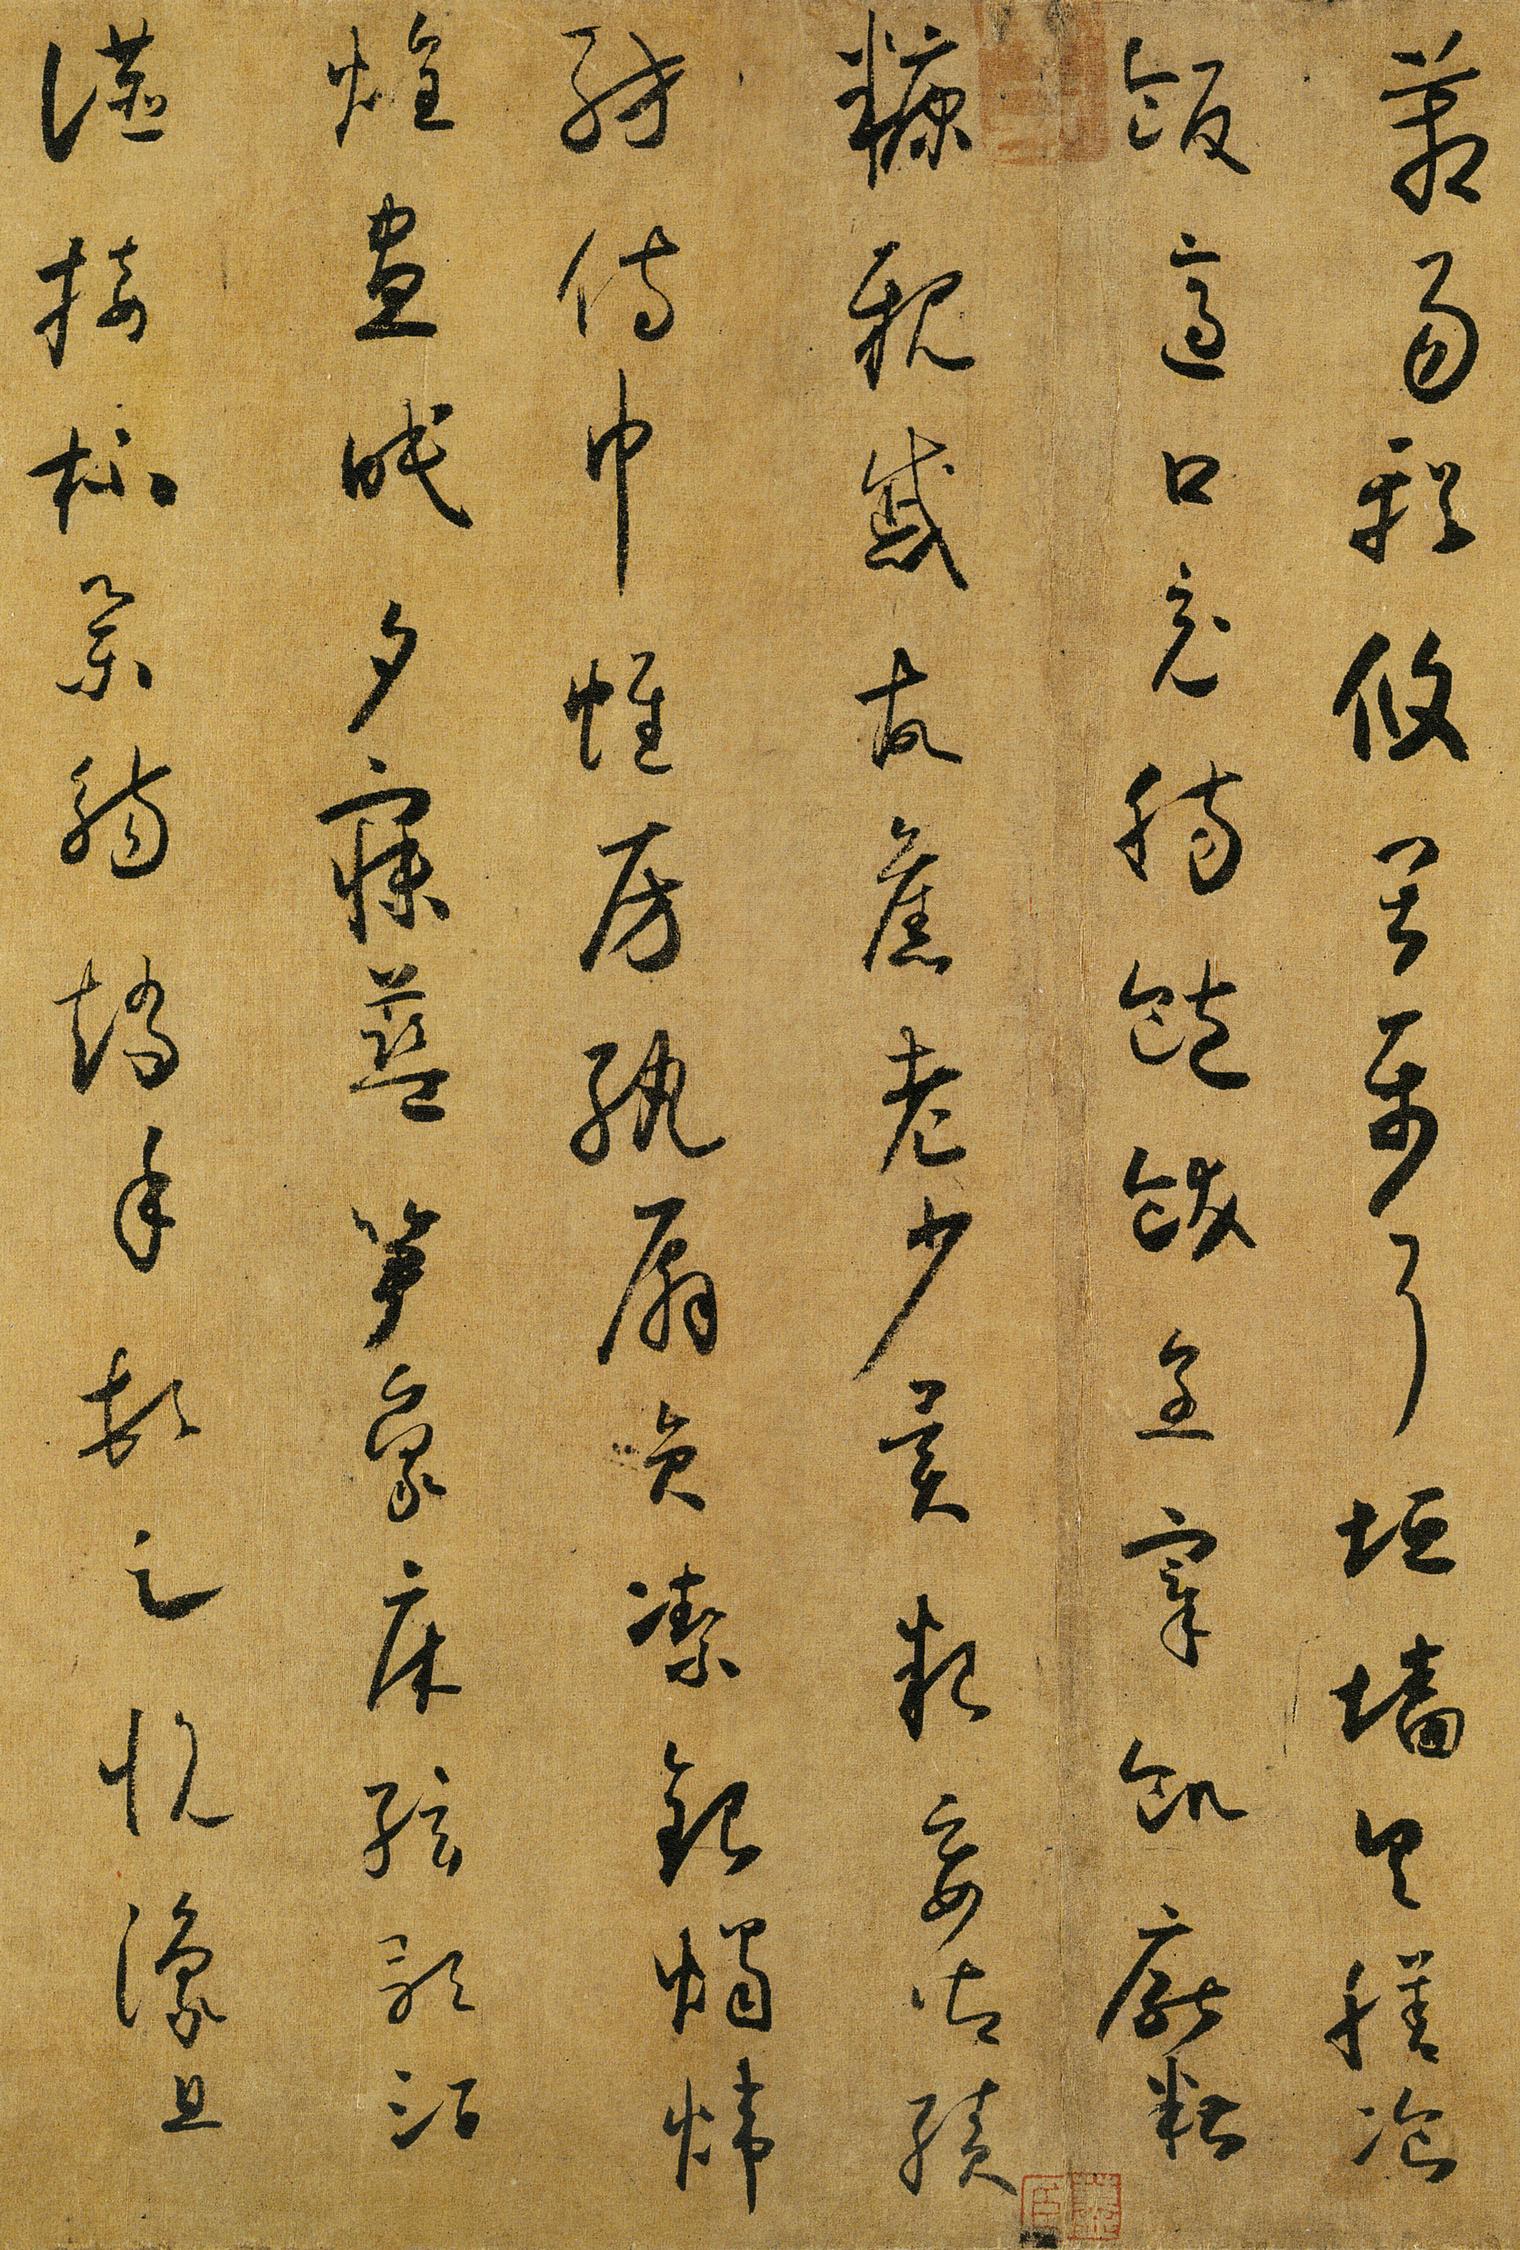 箱易輶攸畏屬耳垣墻具膳飡
飯適口充腸飽飫烹宰飢厭糟
糠親戚故舊老少異粮妾御績
紡侍巾帷房紈扇員潔銀燭煒
煌晝眠夕寐藍笋象床絃歌酒
讌接杯舉觴矯手頓足悅豫且